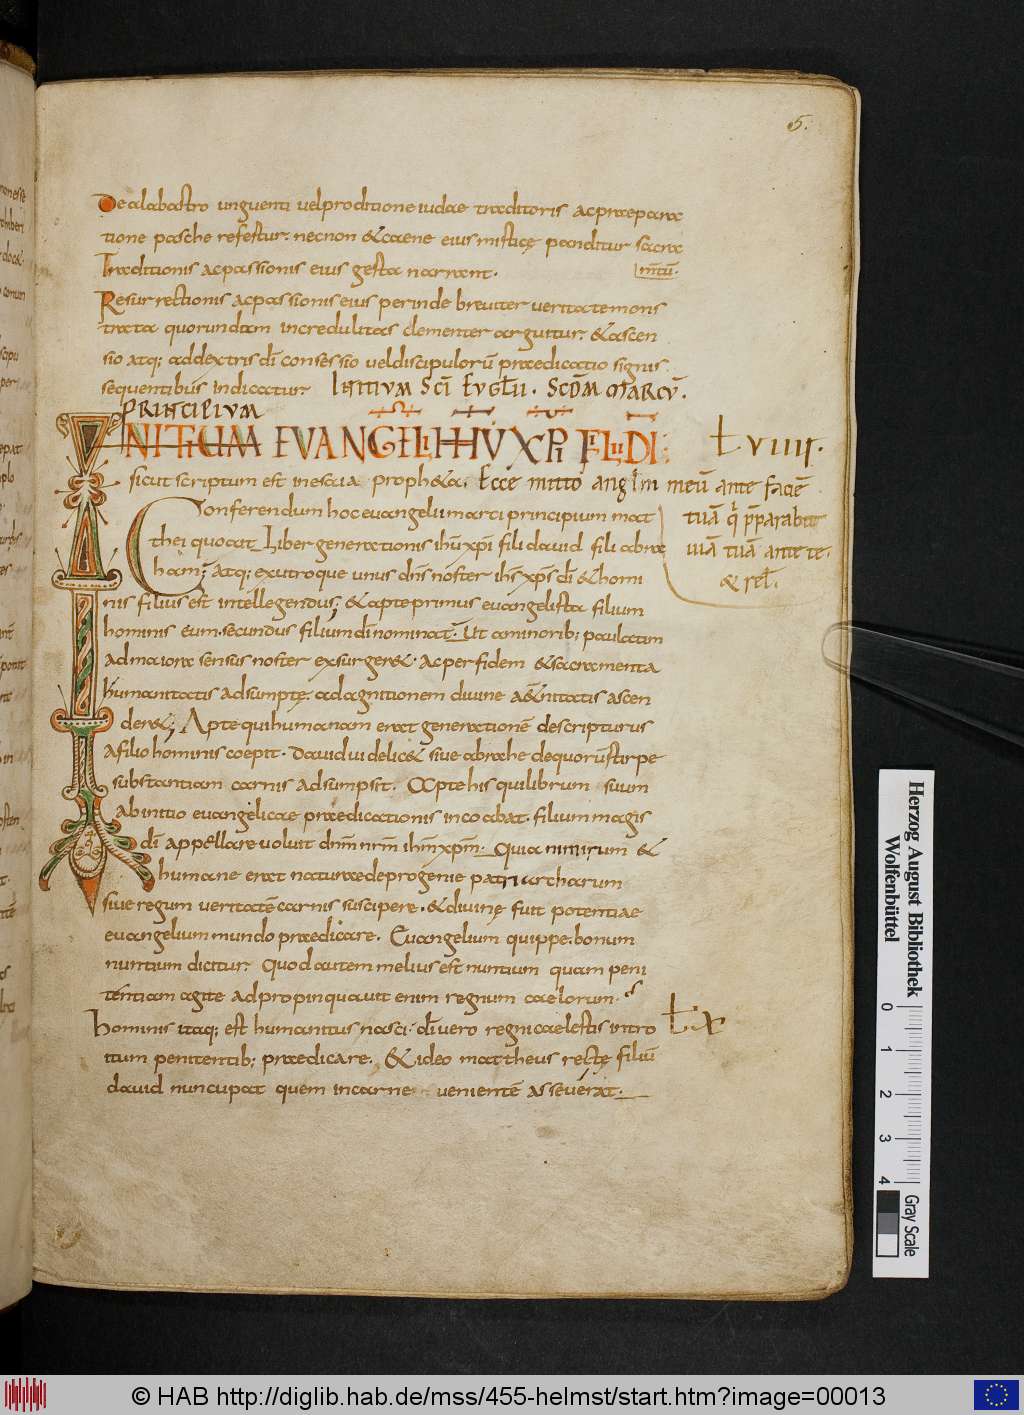 5.
De alabastro unguenti vel proditione iudae traditoris ac praepara
tione pasche refertur. necnon & caene eius misticę panditur sacra
Traditionis ac passionis eius gesta narrant.
Resurrectionis ac passionis eius perinde breviter veritate mons
trata quorundam incredulitas clementer arguitur. & ascen
sio atq; ad dextris dī consessio vel discipulorū praedicatio signis
sequentibus indicatur INITIUM SCĪ EVGLII. SCDM MARCŪ.
PRINCIPIUM
INITIUM EVANGELII IHŪ XPI FILII DI
sicut scriptum est in esaia propheta. Ecce mitto anglm meū ante faciē
Conferendum hoc evangelii marci principium mat
tuā q p̄parabit
thei quo ait Liber generationis ihū xpi fili david fili abra
uiā tuā ante te.
ham; Atq; ex utroque unus dn̄s noster ihs xp̄s dī & homi
& rel.
nis filius est intellegendus; & apte primus evangelista filium
hominis eum. secundus filium dī nominat. Ut a minorib; paulatim
ad maiora sensus noster exsurger&. ac per fidem & sacramenta
humanitatis adsumptę. ad agnitionem divine aeternitatis ascen
der&; Apte qui humanam erat generationē descripturus
a filio hominis coepit. David videlic& sive abrahe de quorū stirpe
substantiam carnis adsumpsit. Apte his qui librum suum
ab initio evangelicae praedicationis incoabat. filium magis
dī appellare voluit dn̄m nr̄m ihm xpm. Quia nimirum &
humane erat naturae de progenie patriarcharum
sive regum veritatē carnis suscipere. & divinę fuit potentiae
evangelium mundo praedicare. Evangelium quippe. bonum
nuntium dicitur. Quod autem melius est nuntium quam peni
tentiam agite adpropinquavit enim regnum caelorum.
hominis itaq; est humanitus nasci. dī vero regni caelestis intro
itum penitentib; praedicare. & ideo mattheus rectę filiū
david nuncupat quem in carne venientē asseverat.
Herzog August Bibliothek
Wolfenbüttel
0 1 2 3 4
Gray Scale
© HAB http://diglib.hab.de/mss/455-helmst/start.htm?image=00013